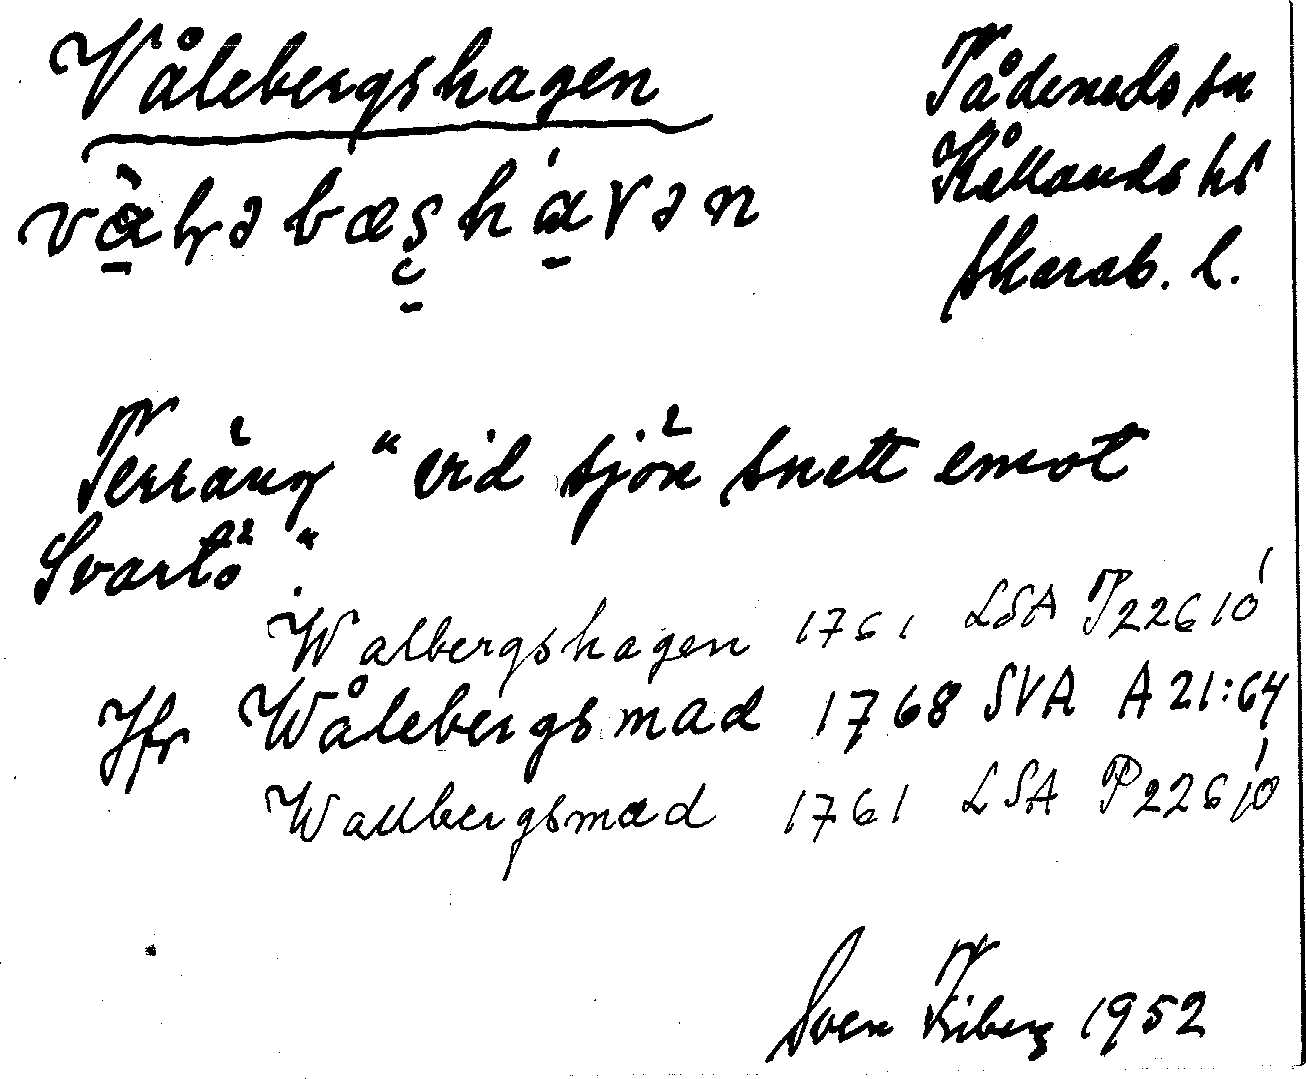 Vålebergshagen
Tådeneds sn
Kållands hd
Skarab. l.
Terräng "vid sjön snett emot
Svartö".
Walbergshagen 1761 LSA P22610¹
Jfr Wålebergsmad 1768 SVA A21:64
Wallbergsmad 1761 LSA P22610¹
Sven Friberg 1952